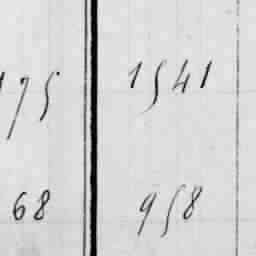 175 1541
68 958